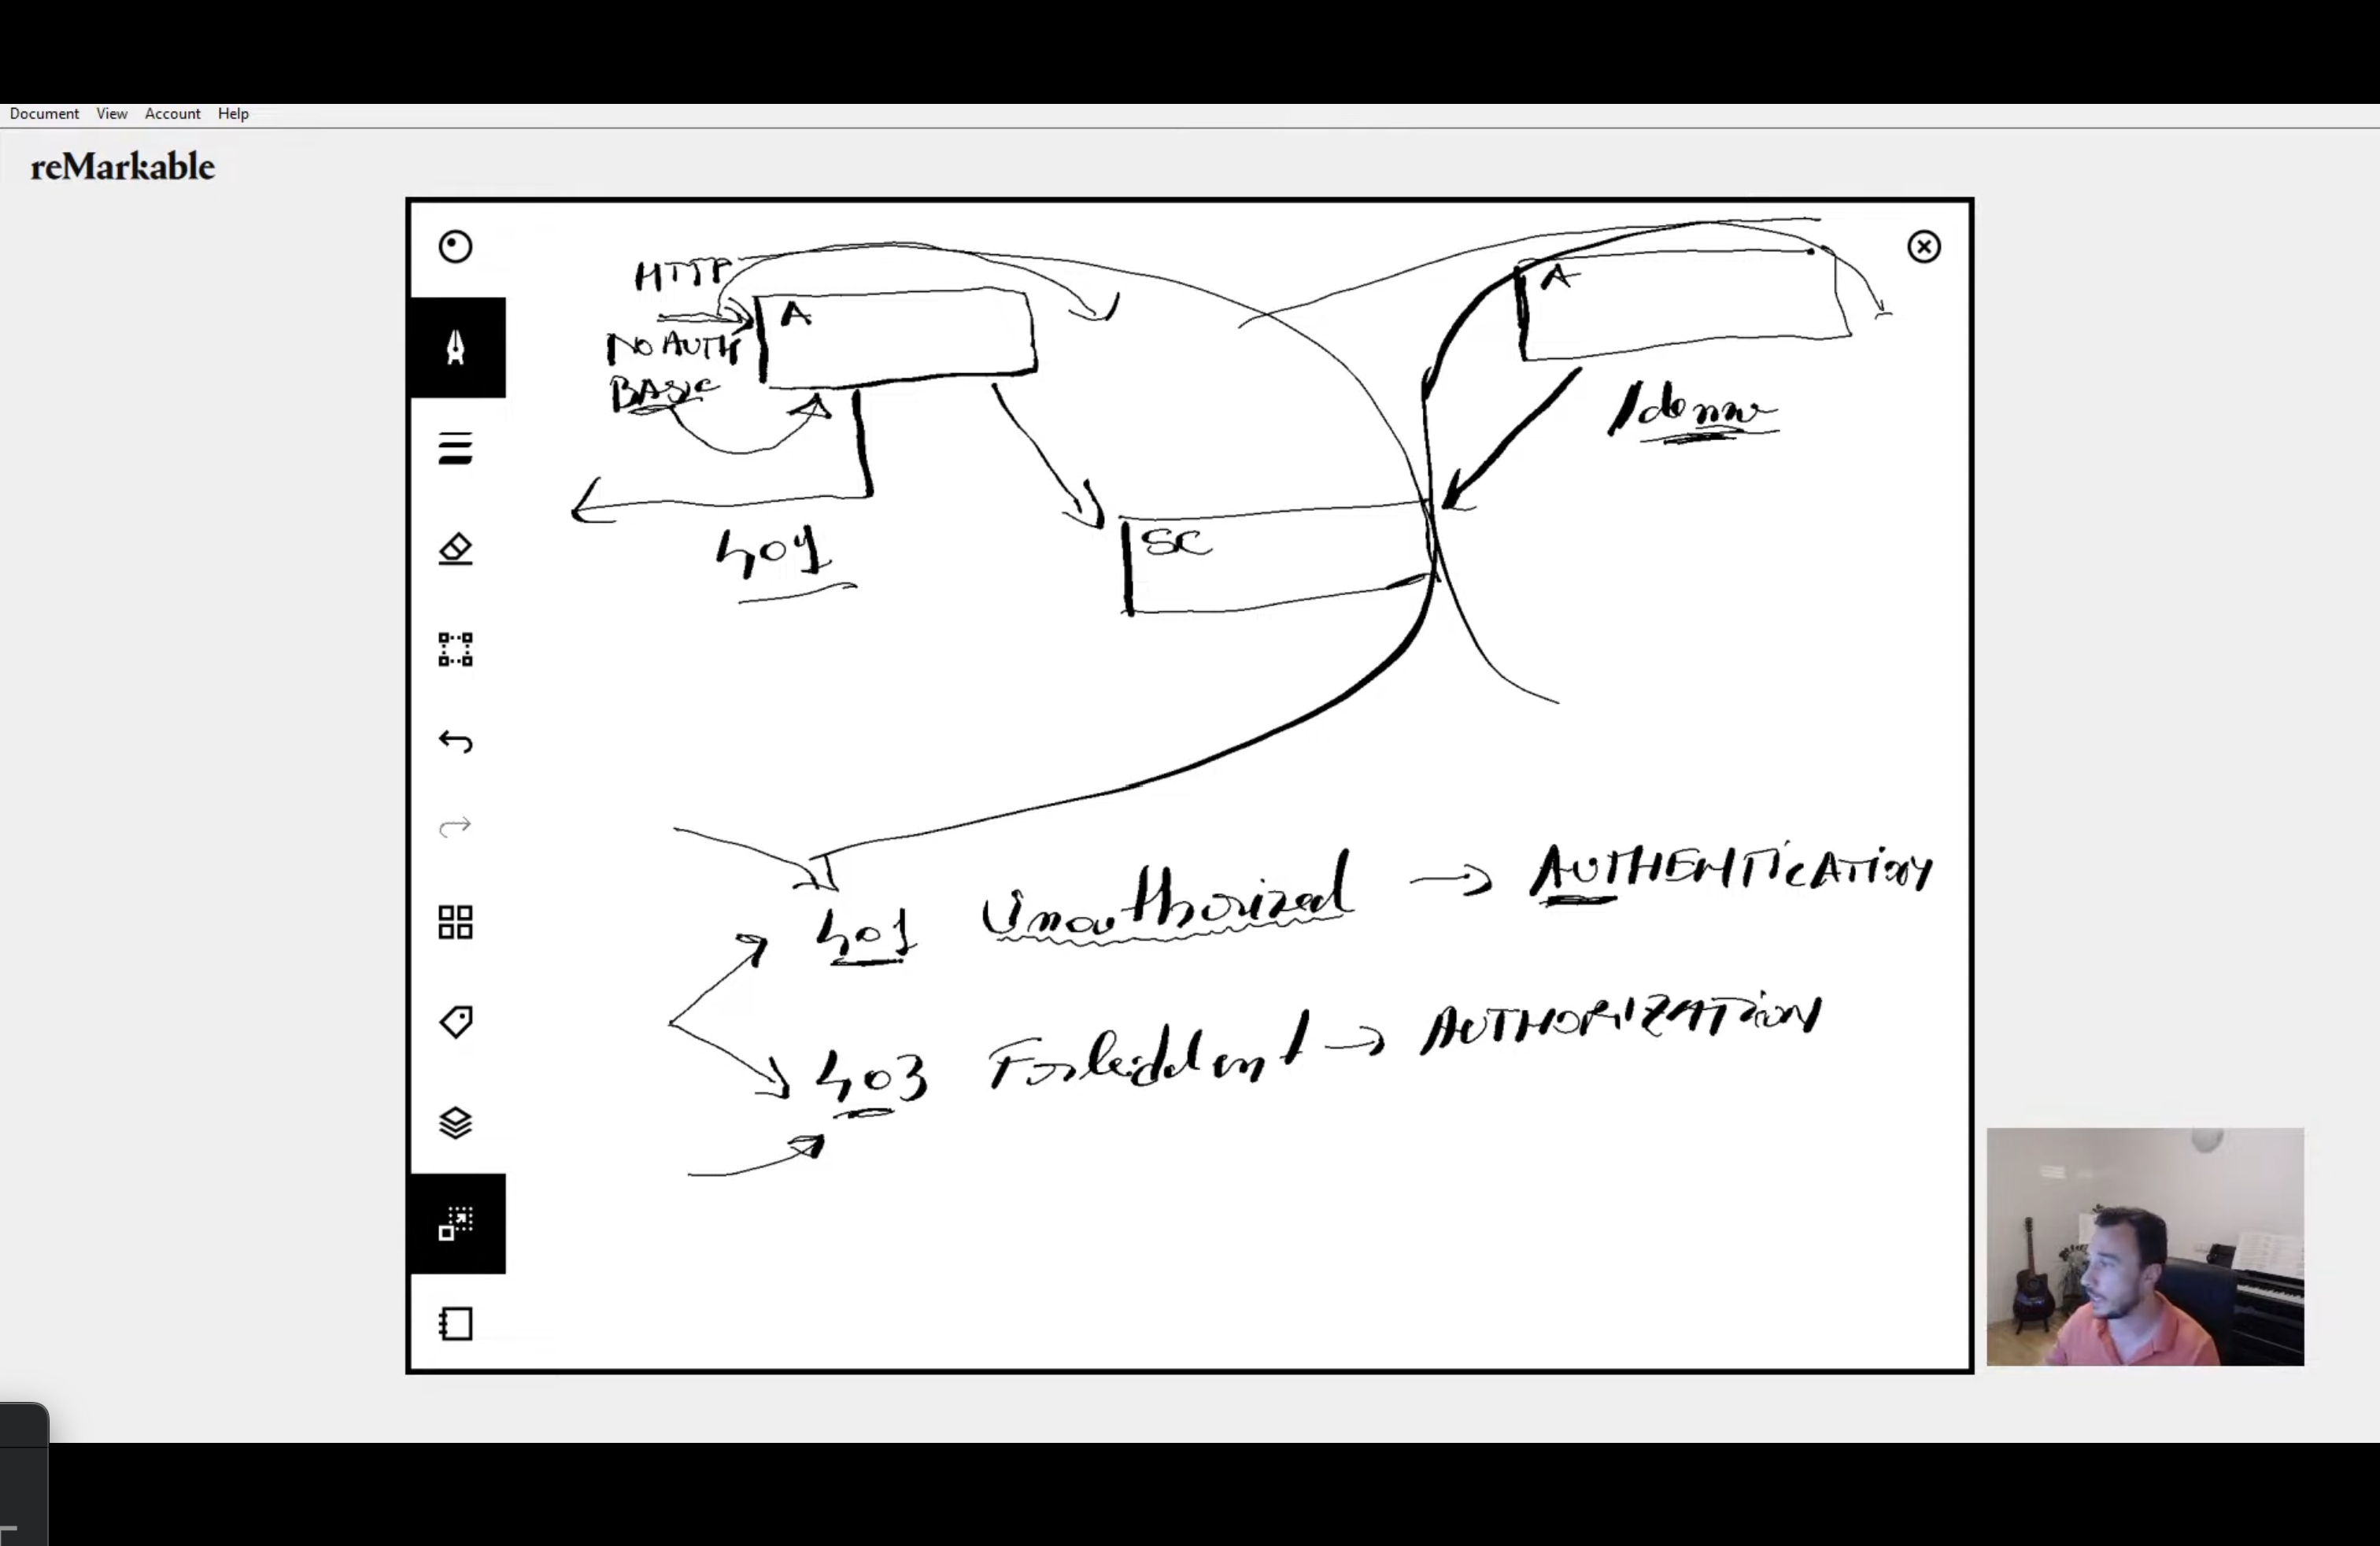 Document View Account Help
reMarkable
HTTP
A
NO AUTH
BASIC
401
SC
A
/demo
401 Unauthorized → AUTHENTICATION
403 Forbidden → AUTHORIZATION